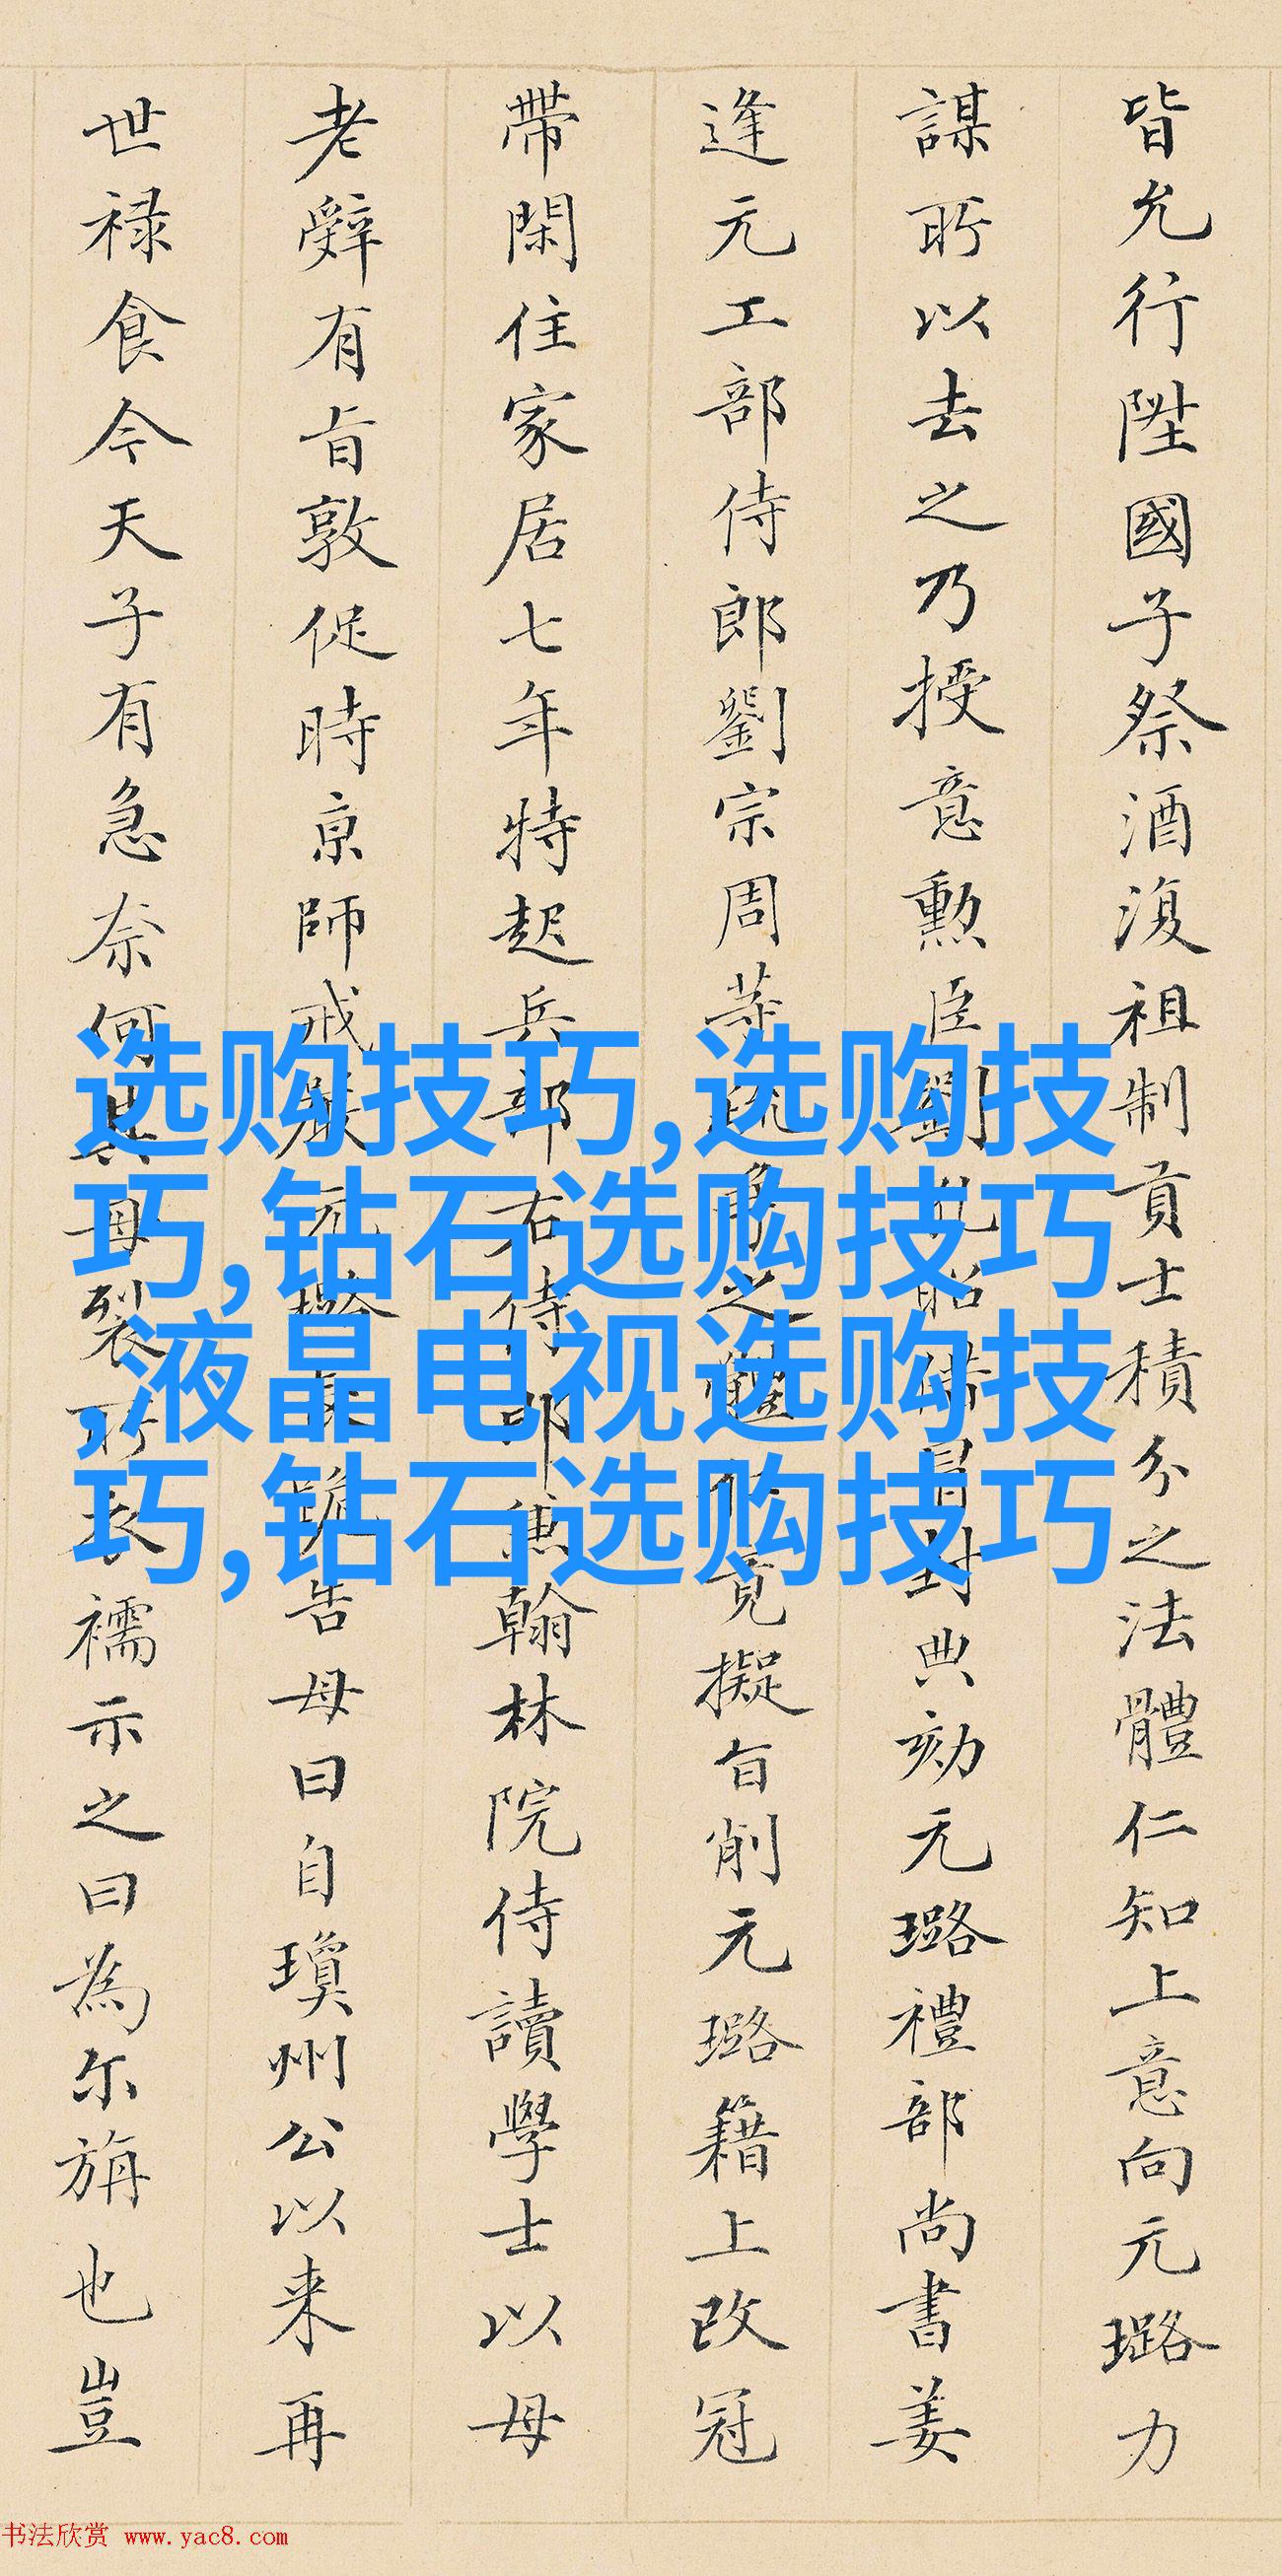 皆允行陞國子祭酒復祖制貢士積分之法體仁知上意向元璐力
謀所以去之乃授意勲臣劉孔昭封典劾元璐禮部尚書姜
逢元工部侍郎劉宗周疏爭之體仁竟擬旨削元璐籍上改冠
帶閑住家居七年特起兵部右侍郎兼翰林院侍讀學士以母
老辭有旨敦促時京師戒嚴元璐長跪告母曰自瓊州公以来再
世禄食今天子有急奈何其母裂所衣襦示之曰為尓旃也豈
选购技巧,选购技
巧,钻石选购技巧
,液晶电视选购技
巧,钻石选购技巧
书法欣赏 www.yac8.com